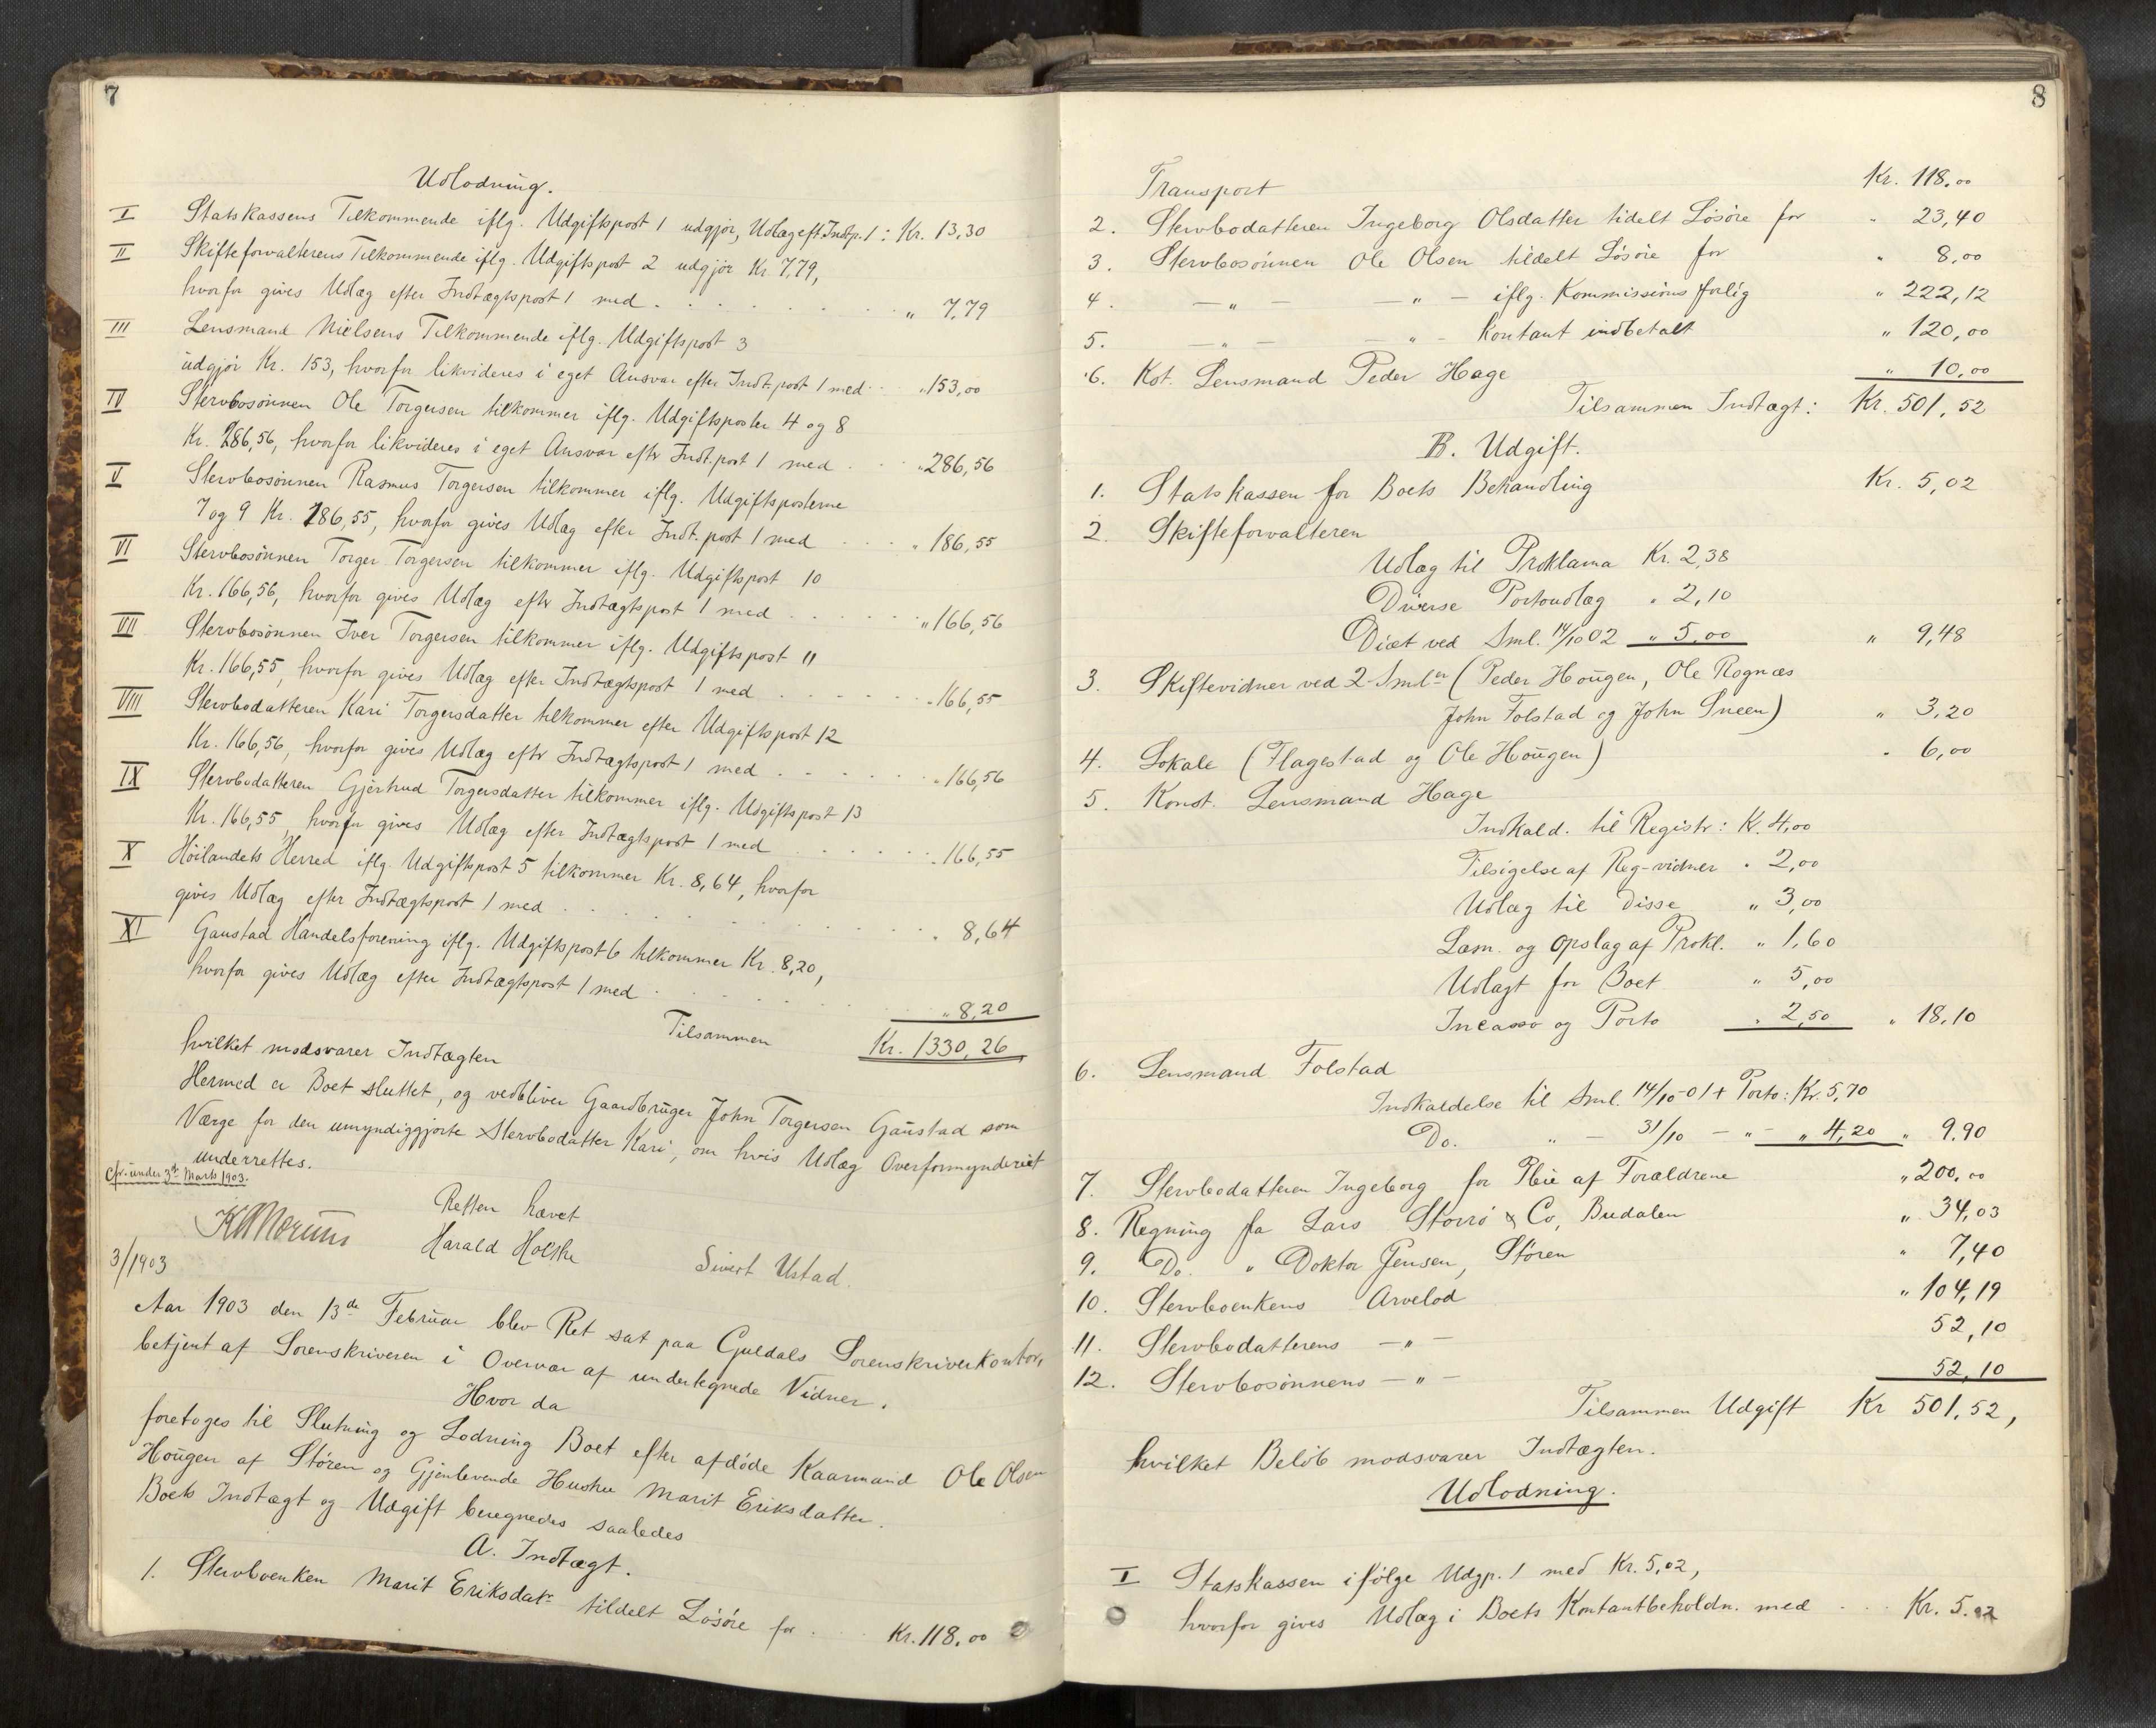 7
Udlodning.
I Statskassens Tilkommende iflg. Udgiftspost 1 udgjør, Udlæg eft. Indtp. 1: Kr. 13,30
II Skifteforvalterens Tilkommende iflg. Udgiftspost 2 udgjør Kr. 7,79,
hvorfor gives Udlæg efter Indtægtspost 1 med . . . . . . . . " 7,79
III Lensmand Nielsens Tilkommende iflg. Udgiftspost 3
udgjør Kr. 153, hvorfor likvideres i eget Ansvar efter Indt.post 1 med . . " 153,00
IV Stervbosønnen Ole Torgersen tilkommer iflg. Udgiftsposter 4 og 8
Kr. 286,56, hvorfor likvideres i eget Ansvar eftr Indt.post 1 med . . . " 286,56
V Stervbosønnen Rasmus Torgersen tilkommer iflg. Udgiftsposterne
7 og 9 Kr. 186,55, hvorfor gives Udlæg efter Indt.post 1 med . . . " 186,55
VI Stervbosønnen Torger Torgersen tilkommer iflg. Udgiftspost 10
Kr. 166,56, hvorfor gives Udlæg eftr Indtægtspost 1 med . . . . . " 166,56
VII Stervbosønnen Iver Torgersen tilkommer iflg. Udgiftspost 11
Kr. 166,55, hvorfor gives Udlæg efter Indtægtspost 1 med . . . . . " 166,55
VIII Stervbodatteren Kari Torgersdatter tilkommer efter Udgiftspost 12
Kr. 166,56, hvorfor gives Udlæg eftr Indtægtspost 1 med . . . . . " 166,56
IX Stervbodatteren Gjertrud Torgersdatter tilkommer iflg. Udgiftspost 13
Kr. 166,55, hvorfor gives Udlæg efter Indtægtspost 1 med . . . . . " 166,55
X Høilandets Herred iflg. Udgiftspost 5 tilkommer Kr. 8,64, hvorfor
gives Udlæg efter Indtægtspost 1 med . . . . . . . . . " 8,64
XI Gaustad Handelsforening iflg. Udgiftspost 6 tilkommer Kr. 8,20,
hvorfor gives Udlæg efter Indtægtspost 1 med . . . . . . " 8,20
Tilsammen Kr. 1330,26
hvilket modsvarer Indtægten
Hermed er Boet sluttet, og vedbliver Gaardbruger John Torgersen Gaustad som
Værge for den umyndiggjorte Stervbodatter Kari, om hvis Udlæg Overformynderiet
underrettes.
Cfr. under 3die Marts 1903.
Retten hævet
Harald Holthe
Sivert Ustad.
3/1903
Aar 1903 den 13de Februar blev Ret sat paa Guldals Sorenskriverkontor,
betjent af Sorenskriveren i Overvær af undertegnede Vidner.
Hvor da
foretoges til Slutning og Lodning Boet efter afdøde Kaarmand Ole Olsen
Hougen af Støren og Gjenlevende Hustru Marit Eriksdatter.
Boets Indtægt og Udgift beregnedes saaledes
A. Indtægt.
1. Stervboenken Marit Eriksdatr tildelt Løsøre for . . . Kr. 118,00
8
Transport Kr. 118,00
2. Stervbodatteren Ingeborg Olsdatter tidelt Løsøre for " 23,40
3. Stervbosønnen Ole Olsen tildelt Løsøre for " 8,00
4. — " — — " — iflg. Kommissionsforlig " 222,12
5. — " — — " — Kontant indbetalt " 120,00
6. Kst. Lensmand Peder Hage " 10,00
Tilsammen Indtægt: Kr. 501,52
B. Udgift.
1. Statskassen for Boets Behandling Kr. 5,02
2. Skifteforvalteren
Udlæg til Proklama Kr. 2,38
Diverse Portoudlæg " 2,10
Diæt ved Sml. 14/10 02 " 5,00 " 9,48
3. Skiftevidner ved 2 Smler (Peder Hougen, Ole Rognæs
John Folstad og John Sneen) " 3,20
4. Lokale (Flagestad og Ole Hougen) " 6,00
5. Konst. Lensmand Hage
Indkald. til Registr: Kr. 4,00
Tilsigelse af Reg-vidner " 2,00
Udlæg til Disse " 3,00
Læsn. og Opslag af Prokl. " 1,60
Udlagt for Boet " 5,00
Incasso og Porto " 2,50 " 18,10
6. Lensmand Folstad
Indkaldelse til Sml. 14/10-01 + Porto: Kr. 5,70
Do. " — 31/10 — " — " 4,20 " 9,90
7. Stervbodatteren Ingeborg for Pleie af Forældrene " 200,00
8. Regning fra Lars Storrø & Co, Budalen " 34,03
9. Do. " Doktor Jensen, Støren " 7,40
10. Stervboenkens Arvelod " 104,19
11. Stervbodatterens — " — 52,10
12. Stervbosønnens — " — 52,10
Tilsammen Udgift Kr 501,52,
hvilket Beløb modsvarer Indtægten.
Udlodning.
I Statskassen ifølge Udgp. 1 med Kr. 5,02,
hvorfor gives Udlæg i Boets Kontantbeholdn. med . . . Kr. 5.02